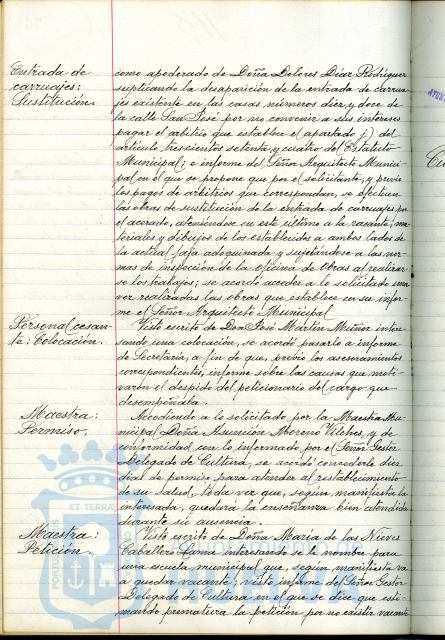 Entrada de
carruajes:
Sustitución.
como apoderado de Doña Dolores Díaz Rodríguez
suplicando la desaparición de la entrada de carrua-
jes existente en las casas números diez y doce de
la calle San José por no convenir a sus intereses
pagar el arbitrio que establece el apartado j) del
artículo trescientos setenta y cuatro del Estatuto
Municipal; e informe del Señor Arquitecto Munici-
pal en el que se propone que por el solicitante, y previo
los pagos de arbitrios que correspondan, se efectúen
las obras de sustitución de la entrada de carruajes por
el acerado, ateniéndose en este último a la rasante, ma-
teriales y dibujos de los establecidos a ambos lados de
la actual faja adoquinada y sujetándose a las nor-
mas de inspección de la oficina de Obras al realizar-
se los trabajos; se acordó acceder a lo solicitado una
vez realizadas las obras que establece en su infor-
me el Señor Arquitecto Municipal
Personal cesan-
te: Colocación.
Visto escrito de Don José Martín Muñoz intere-
sando una colocación, se acordó pasarlo a informe
de Secretaría, a fin de que, previo los asesoramientos
correspondientes, informe sobre las causas que moti-
varon el despido del peticionario del cargo que
desempeñaba.
Maestra:
Permiso.
Accediendo a lo solicitado por la Maestra Mu-
nicipal Doña Asunción Moreno Vilches, y de
conformidad con lo informado por el Señor Gestor
Delegado de Cultura, se acordó concederle diez
días de permiso para atender al restablecimiento
de su salud, toda vez que, según manifiesta la
interesada, quedará la enseñanza bien atendida
durante su ausencia.
Maestra:
Petición.
Visto escrito de Doña María de las Nieves
Caballero Lama interesando se la nombre para
una escuela municipal que, según manifiesta va
a quedar vacante; visto informe del Señor Gestor
Delegado de Cultura en el que se dice que esti-
mando prematura la petición por no existir vacante
ET TERRA